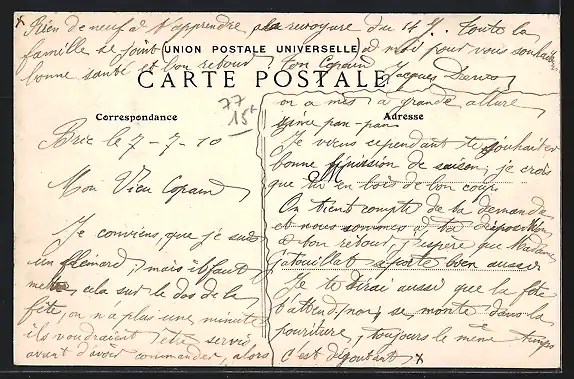 x Rien de neuf à t'apprendre, la revoyure du 14 Jt. Toute la
famille se joint à moi pour vous souhaiter
bonne santé et bon retour. Ton Copain
Jacques
(UNION POSTALE UNIVERSELLE)
CARTE POSTALE
77
15t
Correspondance
Bric le 7-7-10
Mon Vieu Copain
Je conviens, que je suis
un flemard, mais il faut
mettre cela sur le dos de la
fête, on n'a plus une minute
ils voudraient être servis
avant d'avoir commander, alors
on a mis à grande allure
pan-pan
Adresse
Je viens cependant te souhaiter
bonne de saison, je crois
que tu en bois de bon coup.
On tient compte de ta demande
et nous sommes à ta disposition
à bon retour, j'espère que Madame
se porte bien aussi
Je te dirai aussi que la fête
t'attend, non, se monte dans la
pourriture, toujours le même temps
c'est dégoutant x